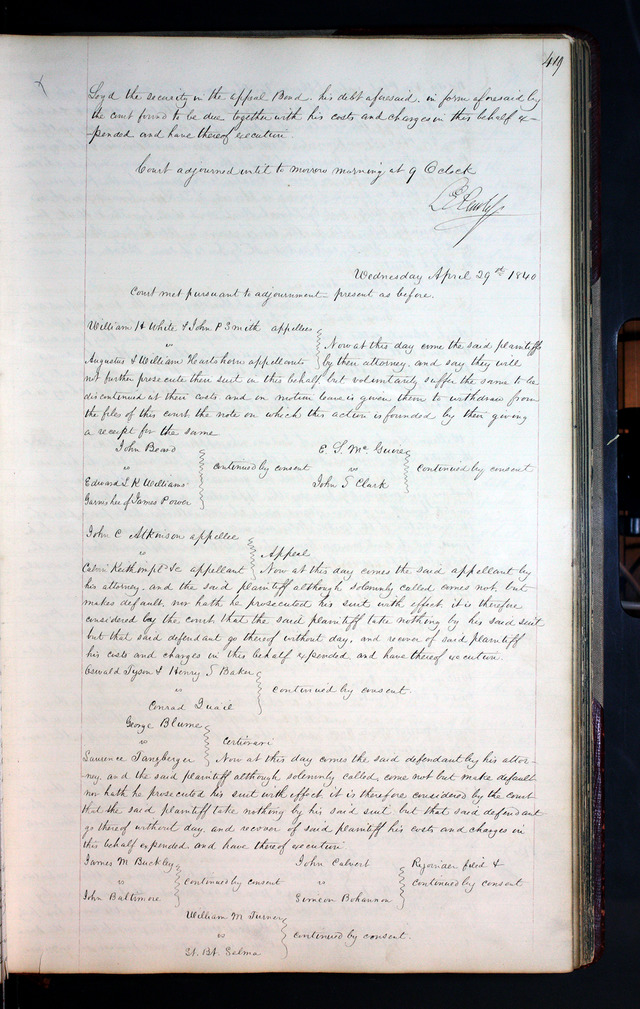 419
Loyd the security in the appeal Bond. his debt aforesaid. in form aforesaid by
the court found to be due together with his costs and charges in this behalf ex-
pended and have thereof execution
Court adjourned until to morrow morning at 9 Oclock
Wednesday April 29th 1840
Court met pursuant to adjournment present as before.
William H White & John P Smith appellees
vs
Now at this day come the said plaintiffs
Augustus & William Hartshorn appellants
by their attorney. and say they will
not further prosecute their suit in this behalf but voluntarily suffer the same to be
discontinued at their costs. and on motion leave is given them to withdraw from
the files of this court the note on which this action is founded by their giving
a receipt for the same
John Beard
vs
continued by consent
Edward L R Williams
Garnishee of James Power
E. S. Mc Guire
vs
continued by consent
John S Clark
John C Atkinson appellee
vs
Appeal
Keith impl &c appellant
Now at this day comes the said appellant by
his attorney. and the said plaintiff although solemnly called comes not, but
makes default. nor hath he prosecuted his suit with effect it is therefore
considered by the court that the said plaintiff take nothing by his said suit
but that said defendant go thereof without day, and recover of said plaintiff
his costs and charges in this behalf expended and have thereof execution.
Oswald Tyson & Henry S Baker
vs
continued by consent.
Conrad Quail
George Blume
vs
certiorari
Laurence Tanzberger
Now at this day comes the said defendant by his attor-
ney. and the said plaintiff although solemnly called, come not but make default
nor hath he prosecuted his suit with effect it is therefore considered by the court
that the said plaintiff take nothing by his said suit but that said defendant
go thereof without day. and recover of said plaintiff his costs and charges in
this behalf expended and have thereof execution
James M Buckley
vs
continued by consent
John Baltimore
John Calvert
vs
Simeon Bohannon
Rejoinder filed &
continued by consent
William M Turner
vs
continued by consent.
St. Bt. Selma